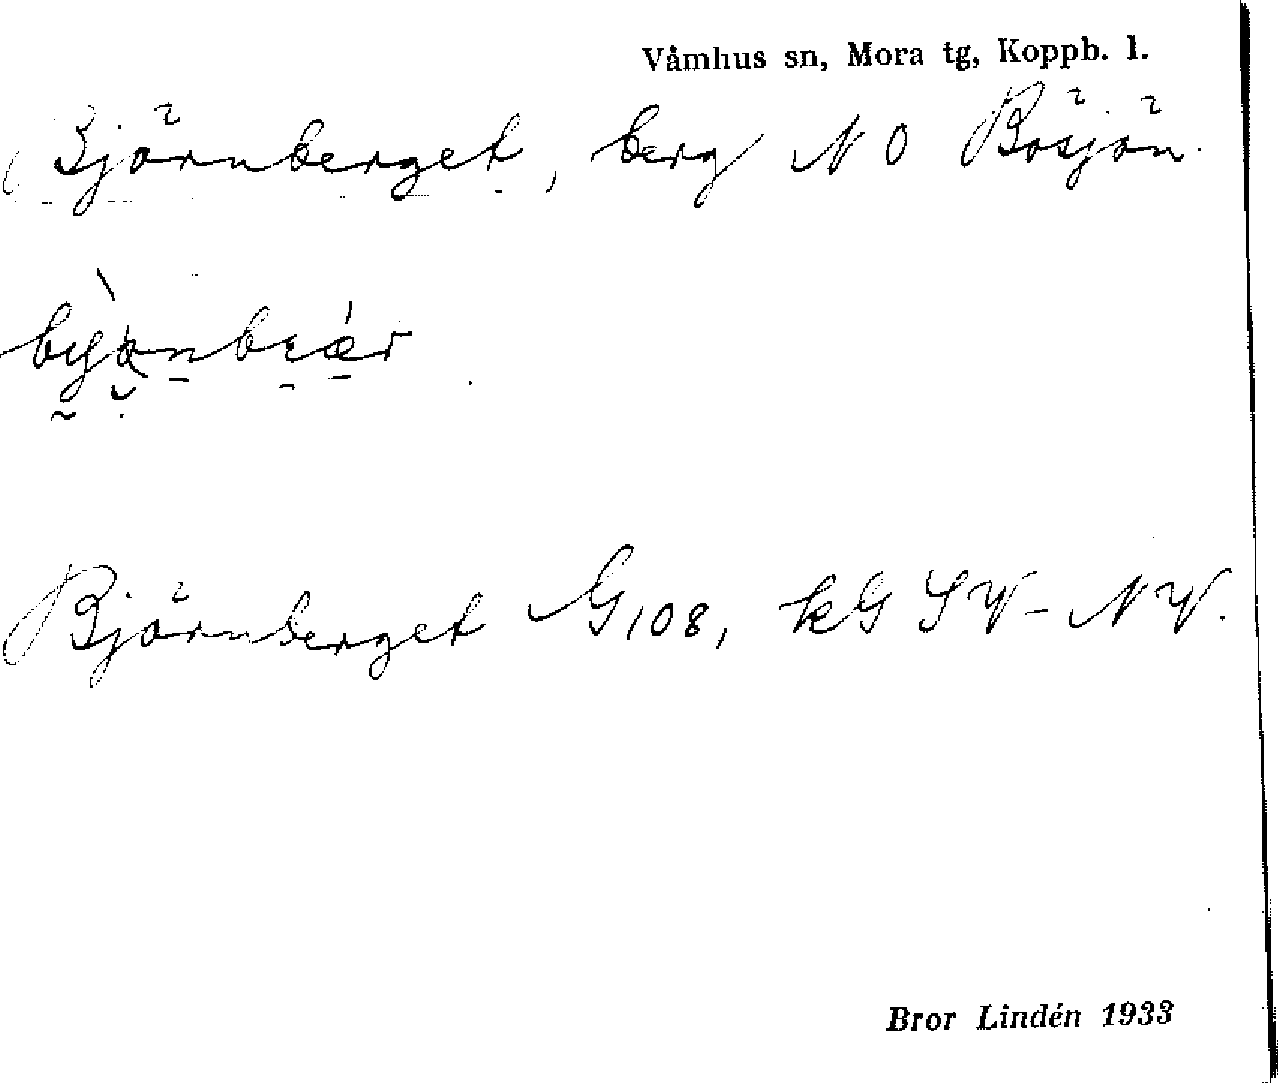 Våmhus sn, Mora tg, Koppb. l.
Björnberget, berg NO Bösjön.
Björnberget G108, kG SV-NV.
Bror Lindén 1933